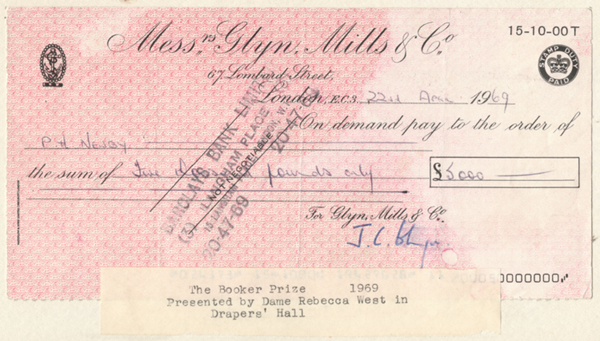 15-10-00T
Messrs Glyn, Mills & Co
STAMP DUTY PAID
67 Lombard Street,
London, E.C.3. 22nd April 1969
On demand pay to the order of
P.H Newby
the sum of Five thousand pounds only £5000
BARCLAYS BANK LIMITED
LANGHAM PLACE
20-47-69
For Glyn, Mills & Co.
The Booker Prize 1969
Presented by Dame Rebecca West in
Drapers' Hall